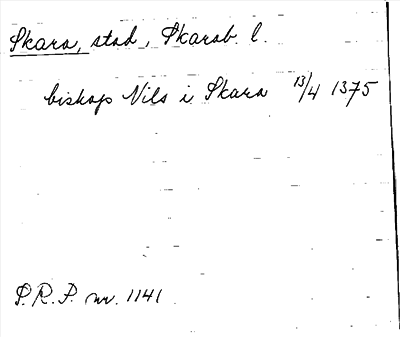 Skara, stad, Skarab. l.
biskop Nils i Skara 13/4 1375
P.R.P. nr. 1141